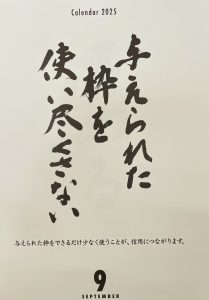 Calendar 2025
与えられた
枠を
使い尽くさない
与えられた枠をできるだけ少なく使うことが、信用につながります。
9
SEPTEMBER